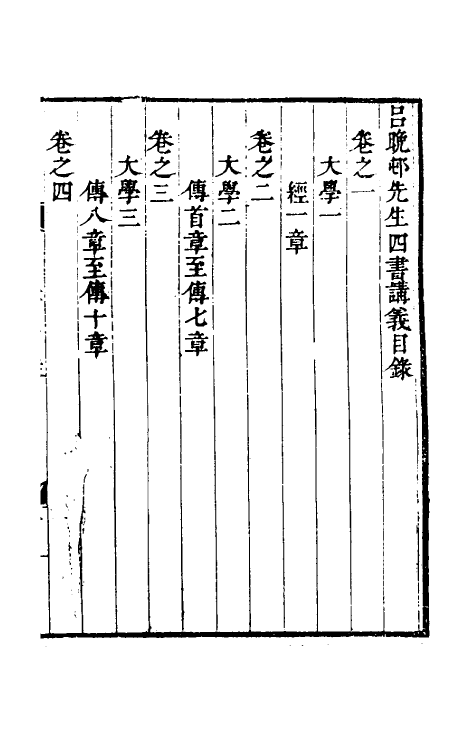 呂晚邨先生四書講義目錄
卷之一
大學一
經一章
卷之二
大學二
傳首章至傳七章
卷之三
大學三
傳八章至傳十章
卷之四